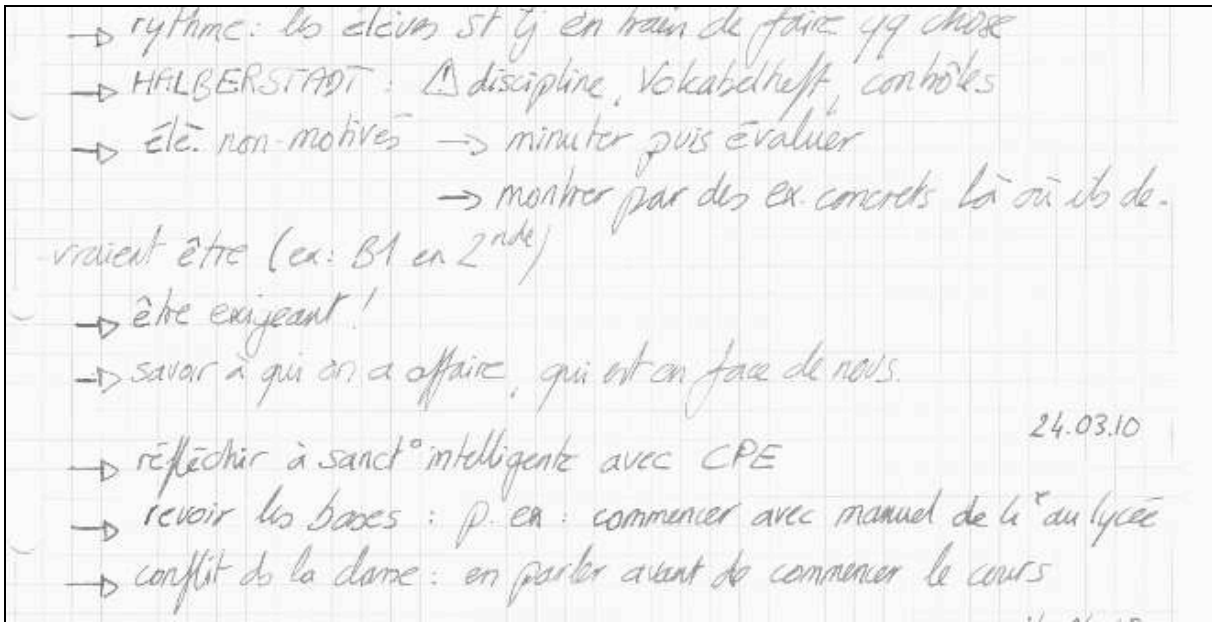 → rythme: les élèves st tj en train de faire qq chose
→ HALBERSTADT : ⚠ discipline, Vokabelheft, contrôles
→ élè. non-motivés → minuter puis évaluer
→ montrer par des ex. concrets là où ils de-
vraient être (ex: B1 en 2nde)
→ être exigeant !
→ savoir à qui on a affaire, qui est en face de nous.
24.03.10
→ réfléchir à sanct° intelligente avec CPE
→ revoir les bases : p. ex : commencer avec manuel de 4e au lycée
→ conflit ds la classe : en parler avant de commencer le cours